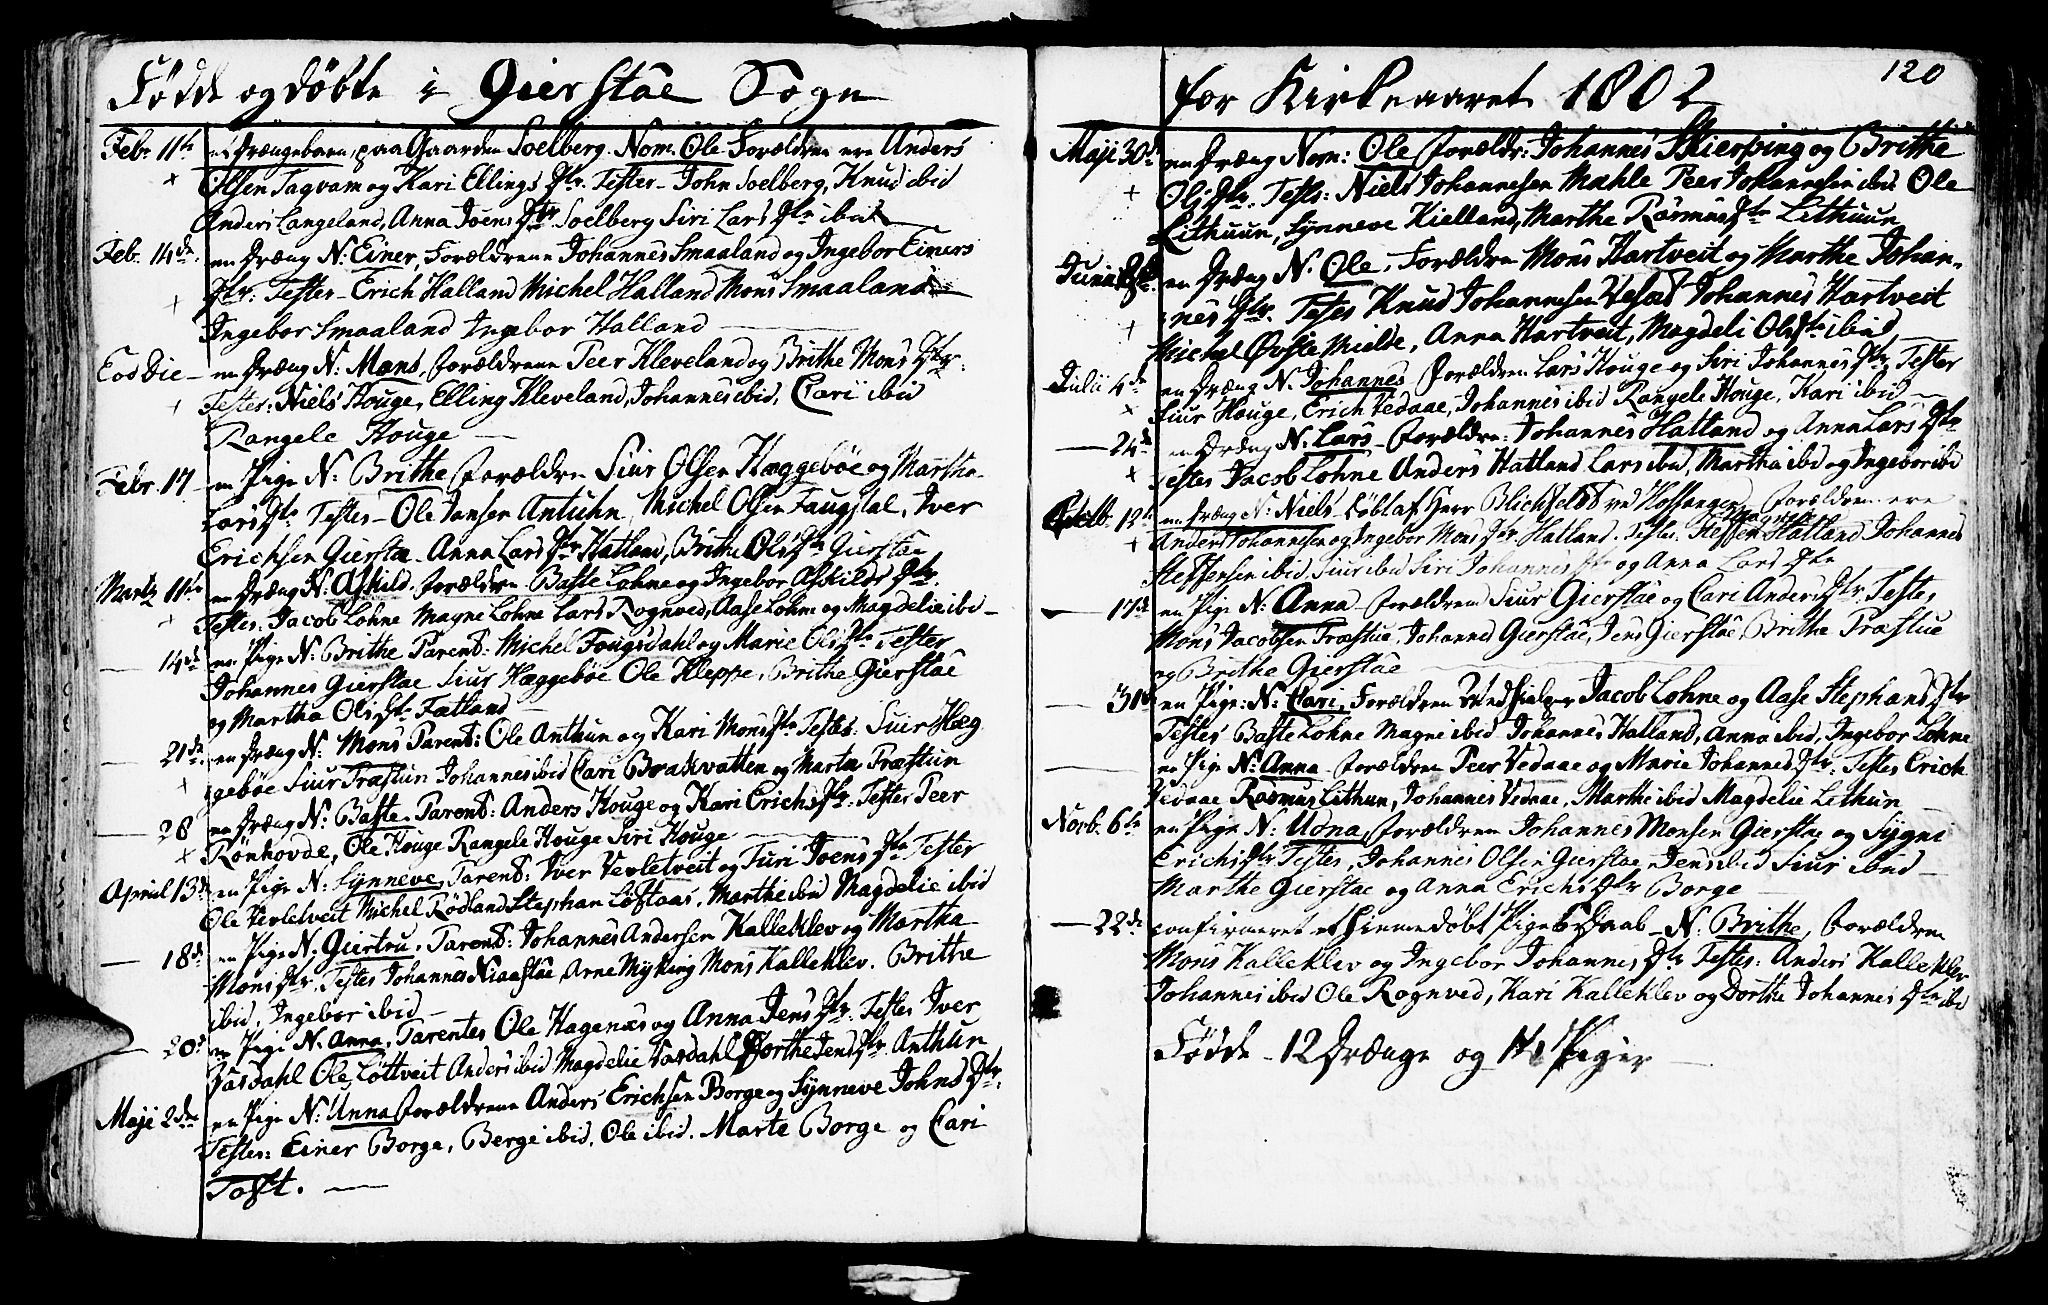 Födde og döbte i Gierstae Sogn
Febr. 11te et Drængebarn, paa Gaarden Soelberg. Nom. Ole Forældrene ere Anders
+ Olsen Tagvam og Kari Ellings Dtr. Tester - John Soelberg, Knud ibid
Anders Langeland, Anna Joens Dtr Soelberg Siri Lars Dtr ibid
Feb. 14de en Dræng N: Einer, Forældrene Johannes Smaaland og Ingebor Einers
+ Dtr: Tester - Erich Halland Michel Halland Mons Smaaland
Ingebor Smaaland Ingebor Halland
Eod Die - en Dræng N: Mons, forældrene Peer Kleveland og Brithe Mons Dtr.
+ Tester: Niels Houge, Elling Kleveland, Johannes ibid, Cari ibid
Rangele Houge
Febr. 17 en Pige N: Brithe forældre Siur Olsen Hæggeböe og Martha
Lars Dtr Testes - Ole Jansen Antuhn, Michel Olsen Faugstal, Iver
Erichsen Gierstae. Anna Lars Dtr Hatland, Brithe Ols Dtr Gierstae
Martz 11te en Dræng N: Askild. forældre Baste Lohne og Ingebor Askilds Dtr.
+ Testes: Jacob Lohne Magne Lohne Lars Rognved, Aase Lohne og Magdelie ibid -
14de en Pige N: Brithe Parent: Michel Faugsdahl og Marie Olis Dtr Testes
Johannes Gierstae Siur Hæggeböe Ole Kleppe, Brithe Gierstae
og Martha Olis Dtr Fætland
21de en Dræng N: Mons Parent: Ole Anthun og Kari Mons Dtr Testes: Siur Hæg
+ geböe Siur Træstun Johannes ibid Cari Brakvatten og Marta Træstun
28 en Dræng N: Baste. Parent: Anders Houge og Kari Erichs Dtr: Tester Peer
+ Rönhovde, Ole Houge Rangele Houge Siri Houge
April 13de en Pige N: Synneve, Parent: Iver Verletveit og Turi Joens Dtr Tester
Ole Verletveit Michel Rödland Stephan Löftaas, Marthe ibid Magdelie ibid
18de en Pige N: Giertru. Parent: Johannes Andersen Kalleklev og Martha
Mons Dtr. Testes Johannes Niaastae, Arne Myking Mons Kalleklev. Brithe
ibid, Ingebor ibid -
20de en Pige N. Anna, Parentes Ole Hagenæs og Anna Jens Dtr: Testes Iver
Vasdahl Ole Löttveit Anders ibid Magdelie Vasdahl Dorthe Jens Dtr Anthun
Maji 2den en Pige N: Unna forældrene Anders Erichsen Borge og Synneve Johns Dtr.
Testes: Einer Borge, Berge ibid, Ole ibid. Marte Borge og Cari
Toft.
120
for Kirkeaaret 1802
Maji 30te en Dræng Nom: Ole forældr: Johannes Skierping og Brithe
+ Olis Dtr. Tests: Niels Johannesen Mæhle Peer Johannesen ibid Ole
Lithuun, Synneve Kielland, Marthe Rasmus Dtr Lithuun
Junii en Dræng N. Ole, Forældre Mons Hartveit og Marthe Johan-
+ nes Dtr. Testes Knud Johannesen Johannes Hartveit
Michel Mielde, Anna Hartveit, Magdeli Ols Dtr ibid
Julii 4de en Dræng N. Johannes forældre Lars Houge og Siri Johannes Dtr Tester
+ Siur Houge, Erich Vedaae, Johannes ibid Rangele Houge, Kari ibid
24de en Dræng N: Lars - forældre: Johannes Hatland og Anna Lars Dtr
+ Testes Jacob Lohne Anders Hatland Lars ibid, Martha ibid og Ingebor ibid
12te en Dræng N: Niels döbt af Herr Blichfeldt ved Hosanger forældrene ere
+ Anders Johannesen og Ingebor Mons Dtr. Hatland. Testes: Steffen Hatland Johannes
Steffensen ibid, Siur ibid Siri Johannes Dtr og Anna Lars Dtr
17de en Pige N: Anna - forældrene Siur Gierstae og Cari Anders Dtr: Testes
Mons Jacobsen Træstue, Johannes Gierstae, Jens Gierstae, Brithe Træstue
og Brithe Gierstae
31te en Pige: N: Cari, Forældren Jacob Lohne og Aase Stephans Dtr
Testes Baste Lohne Magne ibid Johannes Hatland, Anna ibid, Ingebor Lohne
en Pige N: Anna forældren Peer Vedaae og Marie Johannes Dtr: Testes Erich
Vedaae Rasmus Lithun, Johannes Vedaae, Marthe ibid Magdelie Lethun
Novb. 6te en Pige N: Udna, forældrene Johannes Monsen Gierstae og Sygni
Erichs Dtr Testes, Johannes Olsen Gierstae, Jens ibid Siur ibid -
Marthe Gierstae og Anna Erichs Dtr Borge
22de confirmeret et hiemmedöbt Pige Daab - N: Brithe, forældren
Mons Kalleklev og Ingebor Johannes Dtr Testes: Anders Kalleklev
Johannes ibid Ole Rognved, Kari Kalleklev og Dorthe Johannes Dtr ibid
Födde - 12 Drænge og Piger